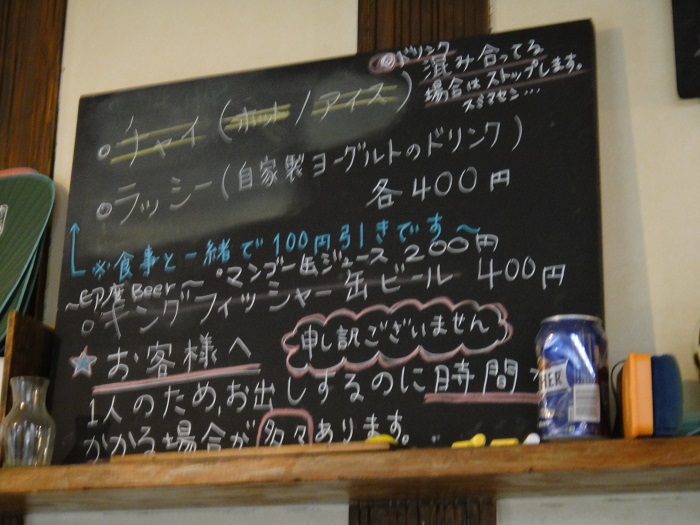 ◎ドリンク
混み合ってる
場合はストップします。
スミマセン...
○チャイ(ホット/アイス)
○ラッシー(自家製ヨーグルトのドリンク)
各400円
※食事と一緒で100円引きです〜
○マンゴー缶ジュース 200円
〜印度Beer〜
○キングフィッシャー缶ビール 400円
★お客様へ
申し訳ございません
1人のため、お出しするのに時間が
かかる場合が多々あります。